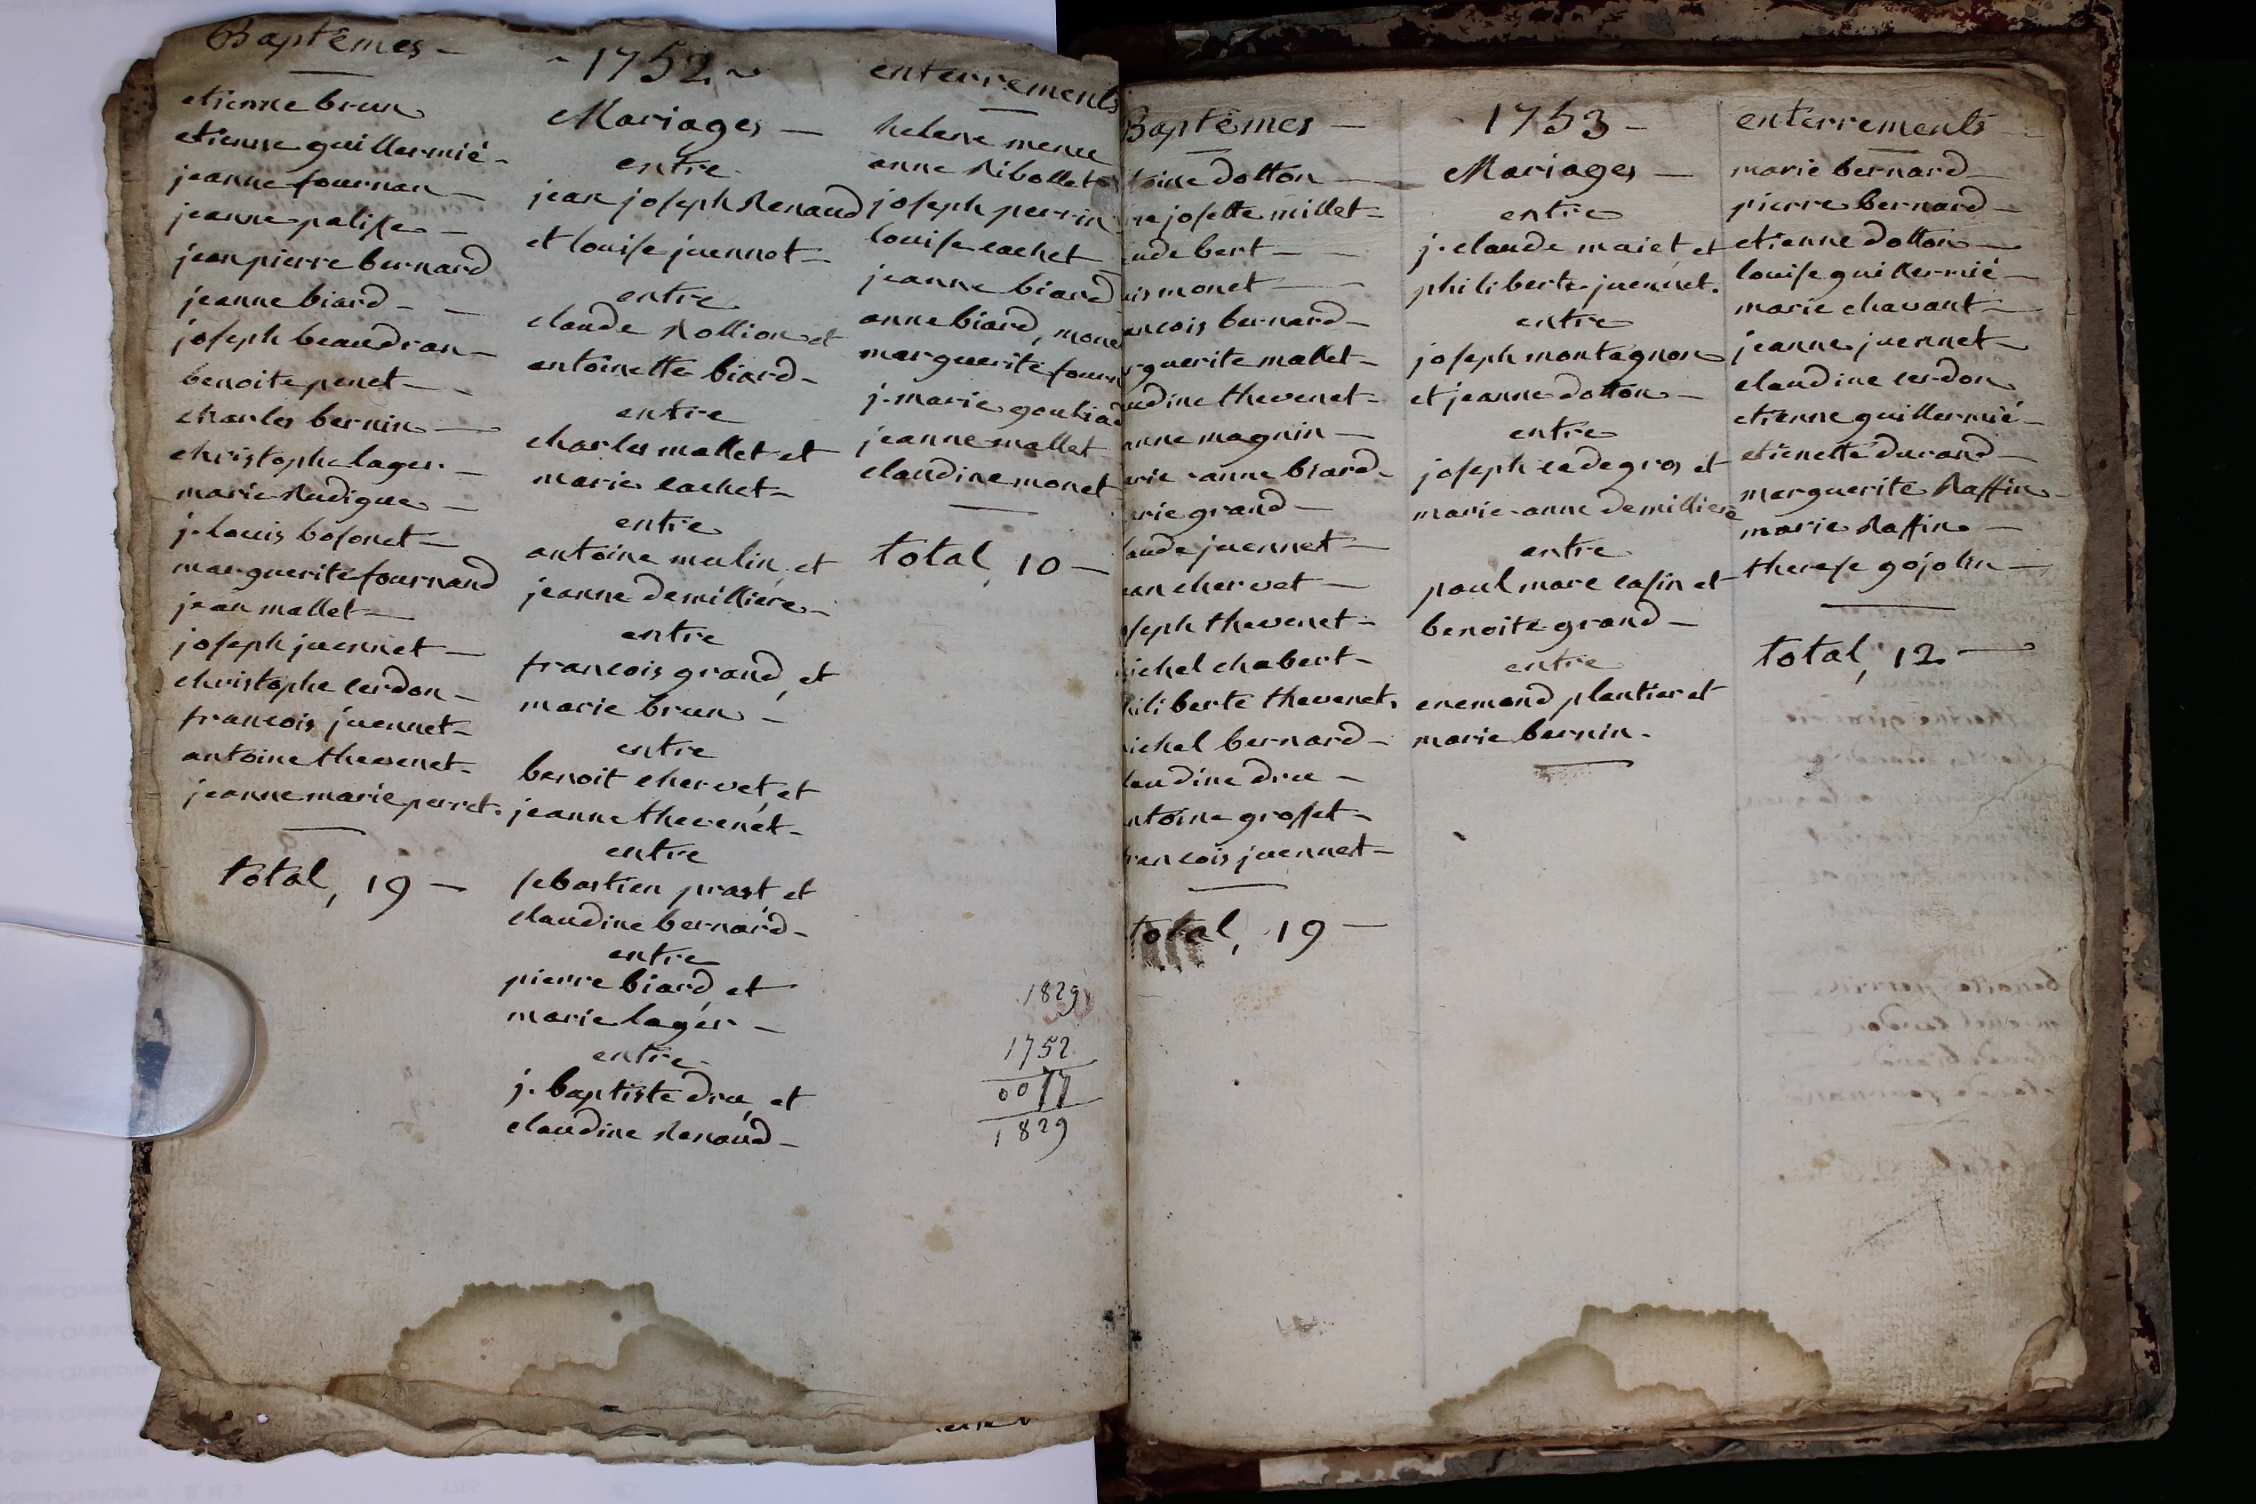 Baptêmes -
etienne brun
etienne guillermié -
jeanne fournan -
jeanne palisse -
jean pierre bernard
jeanne biard - -
joseph beaudran -
benoite penet - -
charles bernin -
christophe lager -
marie Rudigue -
j. louis bosonet -
marguerite fournand
jean mallet -
joseph juennet -
christophe cerdon -
francois juennet -
antoine thevenet -
jeanne marie perret.
total, 19 -
- 1752 ~
Mariages -
entre
jean joseph Renaud
et louise juennet -
entre
claude Rollion et
antoinette biard -
entre
charles mallet et
marie cachet -
entre
antoine mulin, et
jeanne demilliere -
entre
francois grand, et
marie brun -
entre
benoit chervet, et
jeanne thevenet -
entre
sebastien prast, et
claudine bernard -
entre
pierre biard, et
marie lager -
entre
j. baptiste dru, et
claudine Renaud -
enterrements
helene menu
anne Ribollet
joseph perrin
louise cachet
jeanne biard
anne biard, mone
marguerite fourn
j. marie goubiad
jeanne mallet
claudine monet
total, 10 -
1829
1752
0077
1829
Baptêmes -
toine dotton -
josette millet -
ude bert - -
is monet - -
ancois bernard -
rguerite mallet -
udine thevenet -
anne magnin -
arie anne biard -
arie grand -
aude juennet -
an chervet -
oseph thevenet -
ichel chabert -
hiliberte thevenet.
ichel bernard -
laudine dru -
ntoine grosset -
rancois juennet -
total, 19 -
1753 -
Mariages -
entre
j. claude maiet, et
philiberte juennet.
entre
joseph montagnon
et jeanne dotton -
entre
joseph cadegros et
marie-anne demilliere
entre
paul marc casin et
benoite grand -
entre
enemond plantier et
marie bernin -
enterrements
marie bernard -
pierre bernard -
etienne dotton -
louise guillermié -
marie chavant -
jeanne juennet -
claudine cerdon
etienne guillermié -
etienette durand -
marguerite Raffin -
marie Raffin -
therese gojolin -
total, 12 -